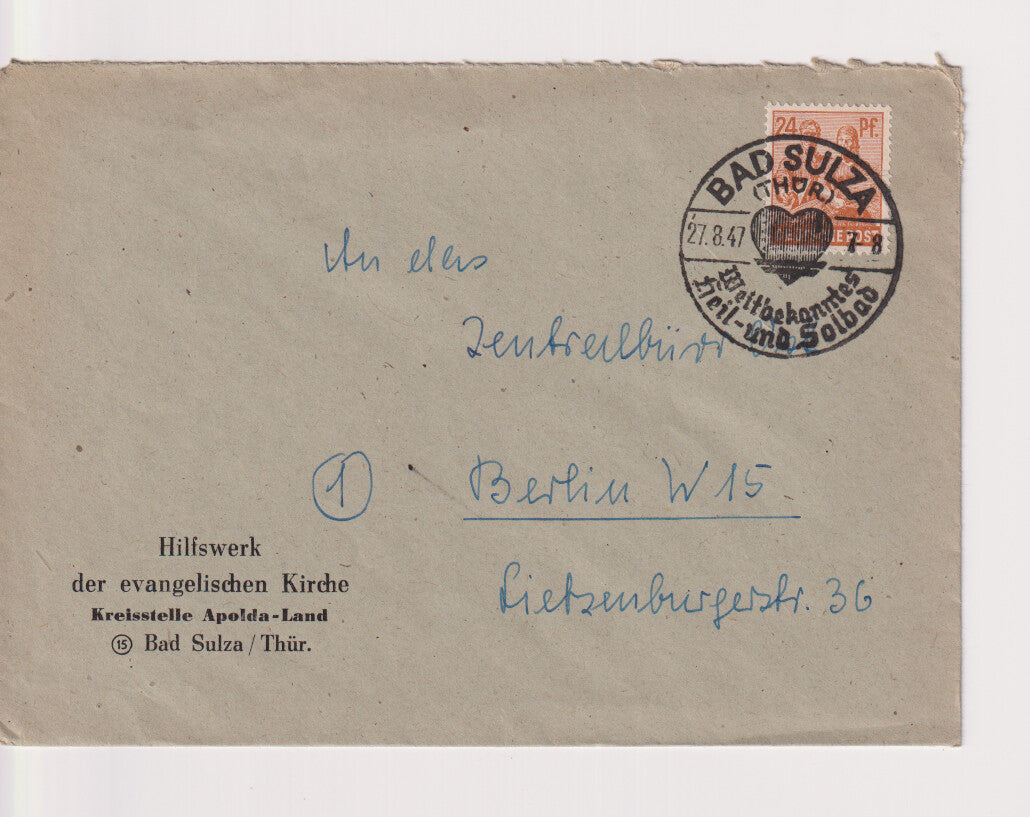 24 Pf.
BAD SULZA
(THÜR)
27.8.47 7-8
Weltbekanntes
Heil- und Solbad
An das
Zentralbüro
① Berlin W 15
Lietzenburgerstr. 36
Hilfswerk
der evangelischen Kirche
Kreisstelle Apolda-Land
⑮ Bad Sulza / Thür.